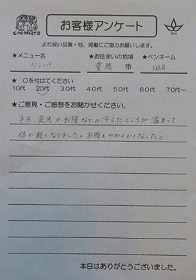 お客様アンケート
より良い品質・性、掲載にご協力お願いします。
★メニュー名
★お住まいの地域
★ペンネーム
リンパ
市
★ ○を付けてください
10代 20代 30代 40代 50代 60代 70代〜
★ご意見・ご感想をお聞かせください。
手先 足先やお腹などの冷えたところが温まって
体が軽くなりました。お腹もやわらかくなった。
本日はありがとうございました。